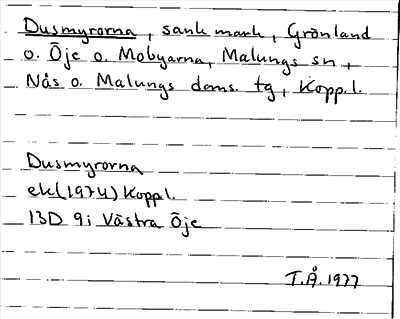 Dusmyrorna, sank mark, Grönland
o. Öje o. Mobyarna, Malungs sn,
Nås o. Malungs doms. tg, Kopp.l.
Dusmyrorna
ek(1974) Koppl.
13D 9i Västra Öje
T.Å. 1977